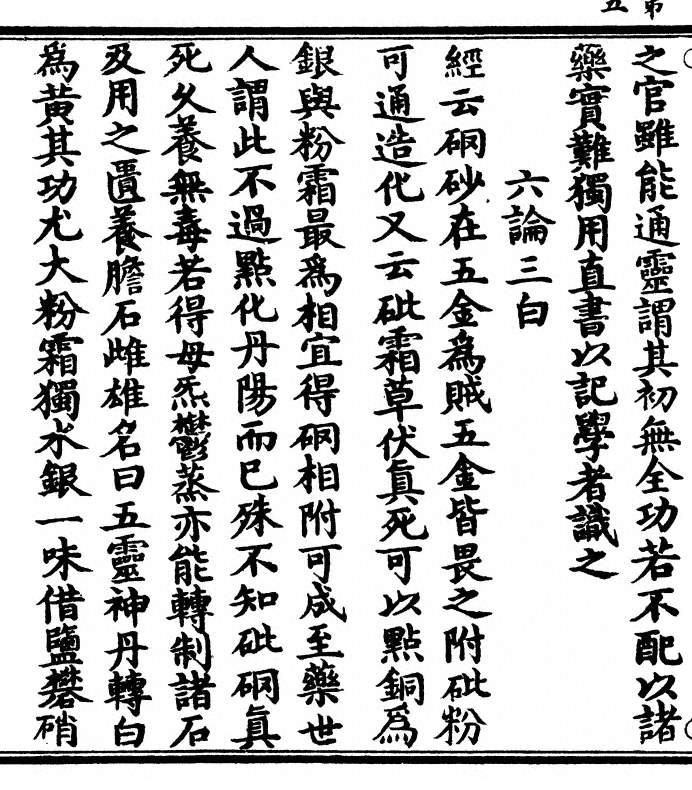 第五
之官雖能通靈謂其初無全功若不配以諸
藥實難獨用直書以記學者識之
六論三白
經云硇砂在五金為賊五金皆畏之附砒粉
可通造化又云砒霜草伏眞死可以點銅為
銀與粉霜最為相宜得硇相附可成至藥世
人謂此不過點化丹陽而已殊不知砒硇眞
死久養無毒若得母炁鬱蒸亦能轉制諸石
及用之匱養膽石雌雄名曰五靈神丹轉白
為黃其功尤大粉霜獨水銀一味借鹽礬硝